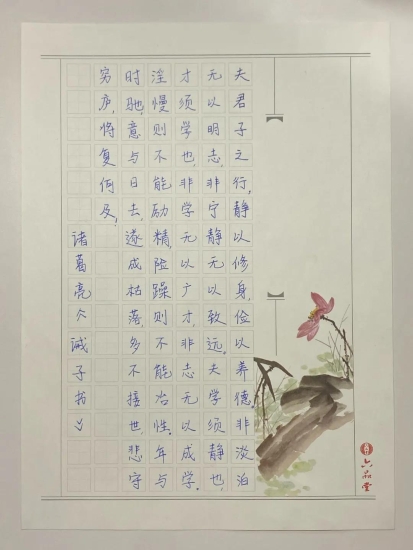 夫君子之行,静以修身,俭以养德。非淡泊
无以明志,非宁静无以致远。夫学须静也,
才须学也,非学无以广才,非志无以成学。
淫慢则不能励精,险躁则不能冶性。年与
时驰,意与日去,遂成枯落,多不接世,悲守
穷庐,将复何及,
诸葛亮《诫子书》
六品堂